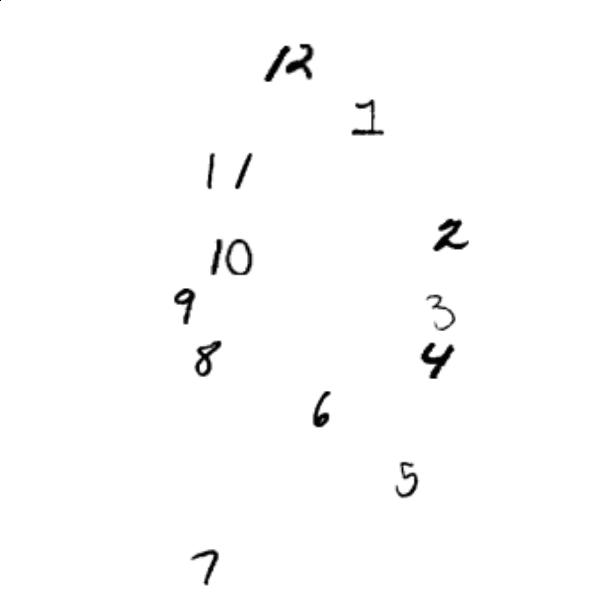 12
1
11
2
10
9
3
8
4
6
5
7